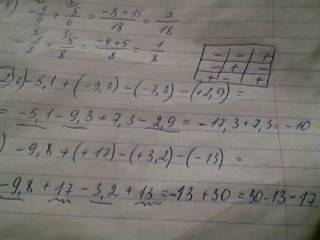 -4/9 + 5/6 = (-8+15)/18 = 7/18
= (-4+5)/8 = 1/8
- - +
- + -
+ - -
-5,1 + (-9,3) - (-7,3) - (+2,9) =
= -5,1 - 9,3 + 7,3 - 2,9 = -17,3 + 7,3 = -10
) -9,8 + (+17) - (+3,2) - (-13) =
-9,8 + 17 - 3,2 + 13 = -13 + 30 = 30 - 13 - 17